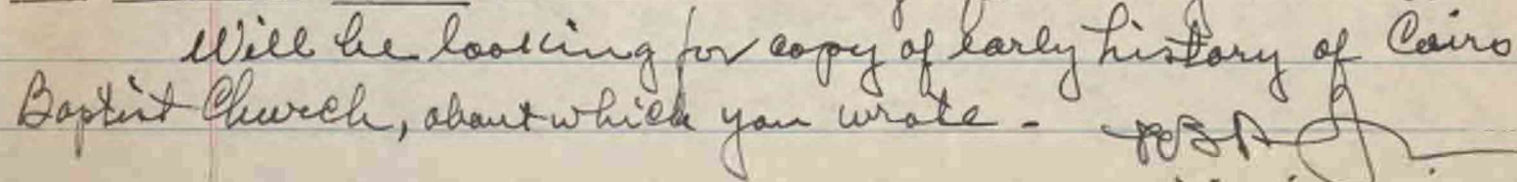 Will be looking for copy of early history of Cairo
Baptist Church, about which you wrote -